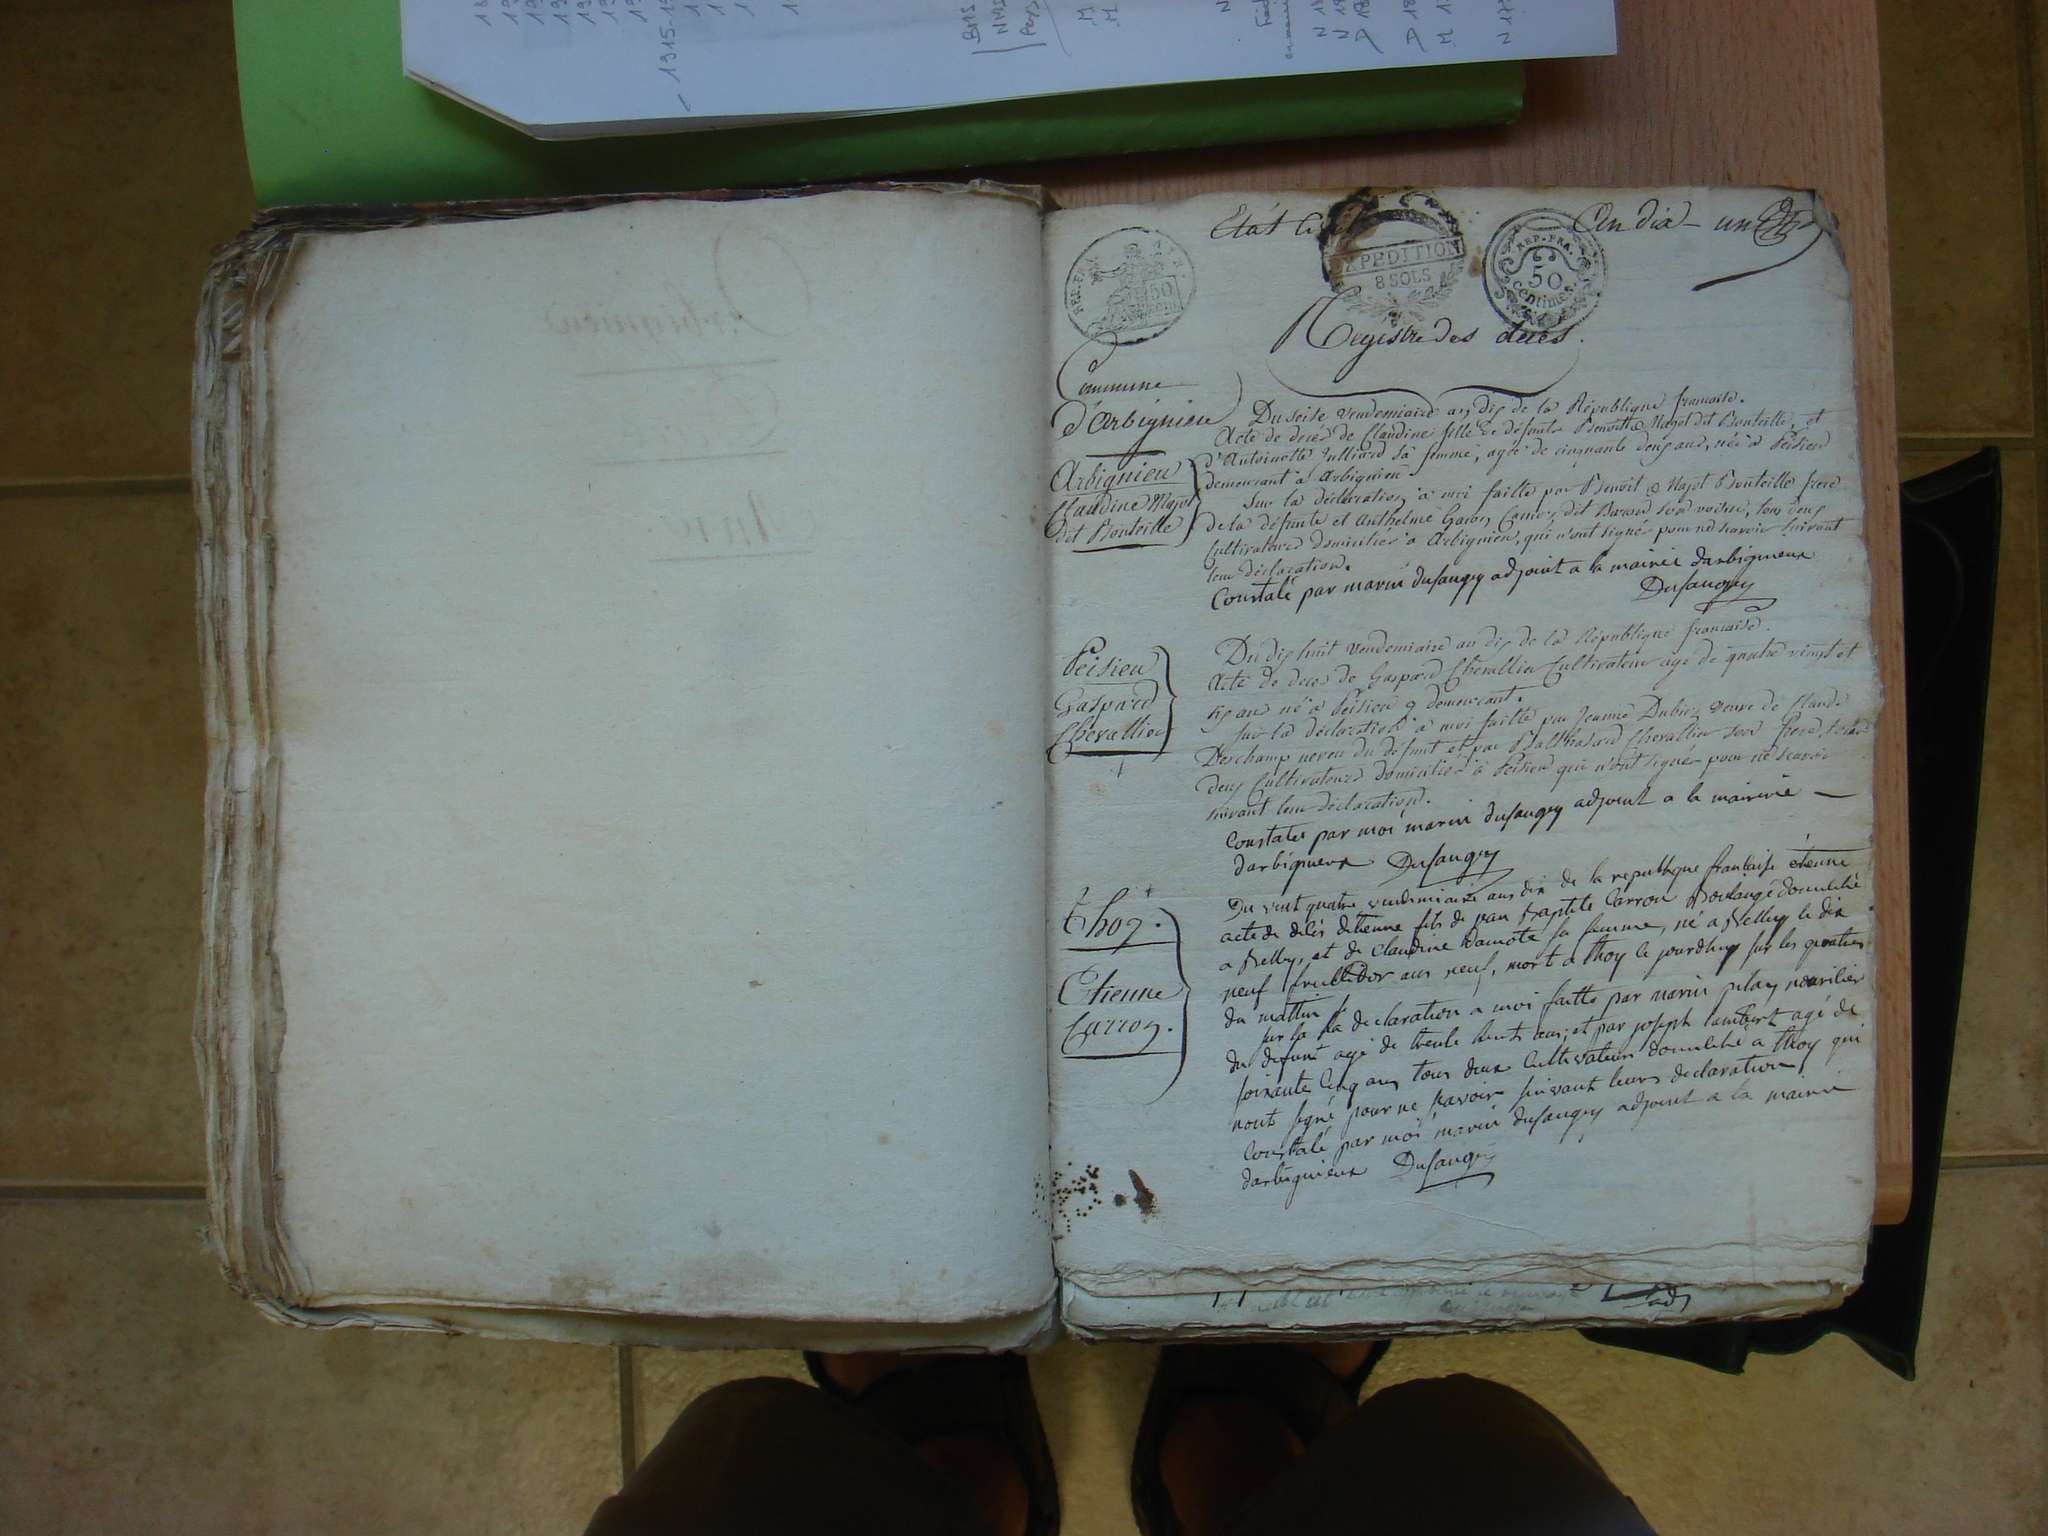 1915-19
BMS
NMS
M
M
N
N 18
N 18
D 18
D 18
M 1
N 177
Etat Civil
An dix - un
REP. FRA.
EXPEDITION
8 SOLS
REP. FRA.
50
centimes
50
Registre des decès.
Commune
d'Arbignieu
Arbignieu
Claudine Mayot
dit Bouteille
Du seise vendemiaire an dix de la République francaise.
Acte de decès de Claudine fille de défunts Benoitte Mayot dit Bouteille, et
d'Antoinette Julliard sa femme, agée de cinquante deux ans, née à Peisieu
demeurant à Arbignieu.
Sur la déclaration à moi faitte par Benoit Mayot Bouteille frere
de la défunte et Anthelme son voisin, tous deux
Cultivateurs domiciliés à Arbignieu, qui n'ont signés pour ne savoir suivant
leur déclaration.
Constaté par marin dusaugey adjoint a la mairie darbignieux
Dusaugey
Peisieu
Gaspard
Chevallier
Du dix huit vendemiaire an dix de la République francaise.
Acte de deces de Gaspard Chevallier Cultivateur agé de quatre vingt et
six ans né à Peisieu y demeurant.
Sur la déclaration à moi faitte par Jeanne Dubiez veuve de Claude
Derchamp neveu du défunt et par Balthasard Chevallier son frere, tous
deux Cultivateurs domiciliés à Peisieu qui n'ont signés pour ne scavoir
suivant leur déclaration.
Constates par moi marin dusaugey adjoint a la mairerie
darbignieux Dusaugey
Thoy.
Etienne
Carron.
Du vint quatre vendemiaire ans dix de la republique francaise etienne
acte de décès detienne fils de jean baptite Carron Boulangé domicilié
a Belley, et de Claudine Damote sa femme, né a Belley le dix
neuf fruttidor ans neuf, mort a thoy le jourdhuy sur les quatres
du mattin
sur la la declaration a moi faitte par marin pilay nourilier
du defunt agé de trente huit ans, et par joseph lambert agé de
soixante cinq ans tous deux Cultivateurs domicilié a thoy qui
nont signé pour ne savoir suivant leurs declaration
Constaté par moi marin dusaugey adjoint a la mairie
darbignieux Dusaugey